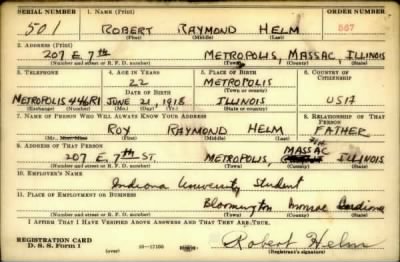 SERIAL NUMBER 1. NAME (Print) ORDER NUMBER
501 ROBERT RAYMOND HELM 867
(First) (Middle) (Last)
2. ADDRESS (Print)
207 E 7th METROPOLIS, MASSAC, ILLINOIS
(Number and street or R. F. D. number) (Town) (County) (State)
3. TELEPHONE 4. AGE IN YEARS 5. PLACE OF BIRTH 6. COUNTRY OF CITIZENSHIP
22 METROPOLIS
DATE OF BIRTH (Town or county)
METROPOLIS 446R1 JUNE 21, 1918 ILLINOIS USA
(Exchange) (Number) (Mo.) (Day) (Yr.) (State or country)
7. NAME OF PERSON WHO WILL ALWAYS KNOW YOUR ADDRESS 8. RELATIONSHIP OF THAT PERSON
ROY RAYMOND HELM FATHER
(Mr., Mrs., Miss) (First) (Middle) (Last)
9. ADDRESS OF THAT PERSON
207 E 7th ST. METROPOLIS, MASSAC ILLINOIS
(Number and street or R. F. D. number) (Town) (County) (State)
10. EMPLOYER'S NAME
Indiana University Student
11. PLACE OF EMPLOYMENT OR BUSINESS
Bloomington Monroe Indiana
(Number and street or R. F. D. number) (Town) (County) (State)
I AFFIRM THAT I HAVE VERIFIED ABOVE ANSWERS AND THAT THEY ARE TRUE.
REGISTRATION CARD
D. S. S. Form 1 16-17105 Robert Helm
(Registrant's signature)